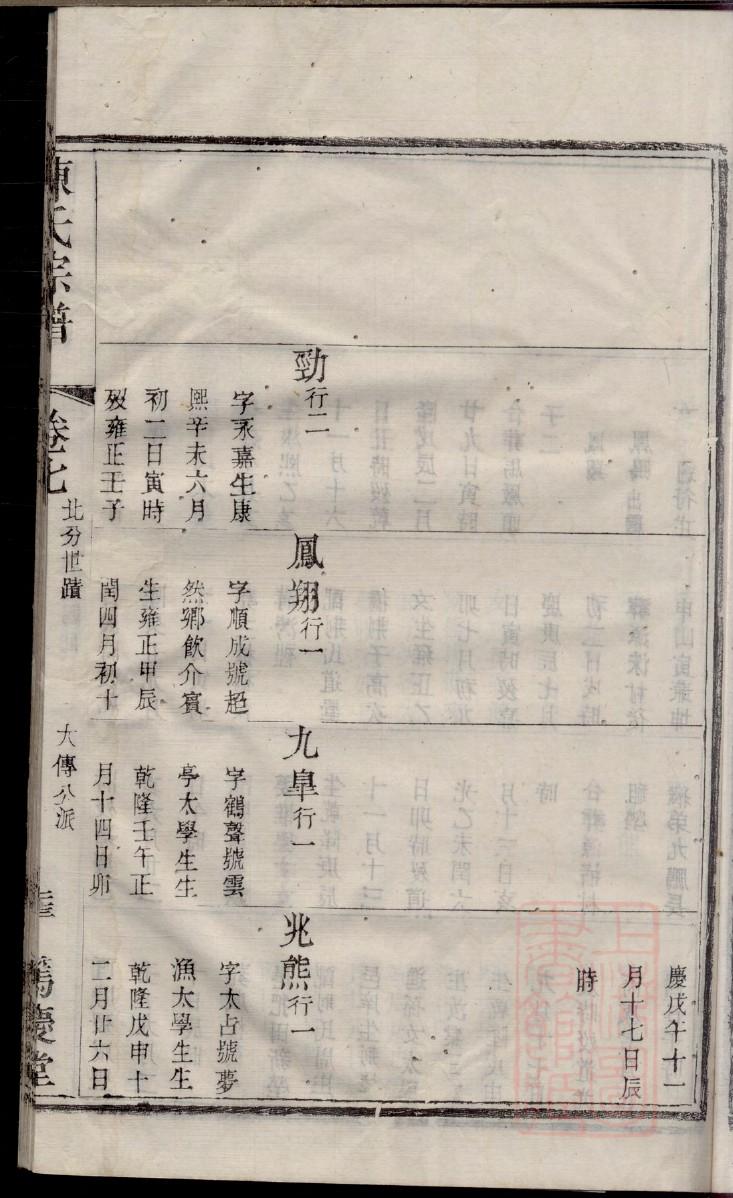 慶戊午十一
月十七日辰
時
勁行二
字永嘉生康
熙辛未六月
初二日寅時
歿雍正壬子
鳳翔行一
字順成號超
然鄉飲介賓
生雍正甲辰
閏四月初十
九臯行一
字鶴聲號雲
亭太學生生
乾隆壬午正
月十四日卯
兆熊行一
字太占號夢
漁太學生生
乾隆戊申十
二月廿六日
陳氏宗譜
卷七
北分世蹟
大傳公派
篤慶堂